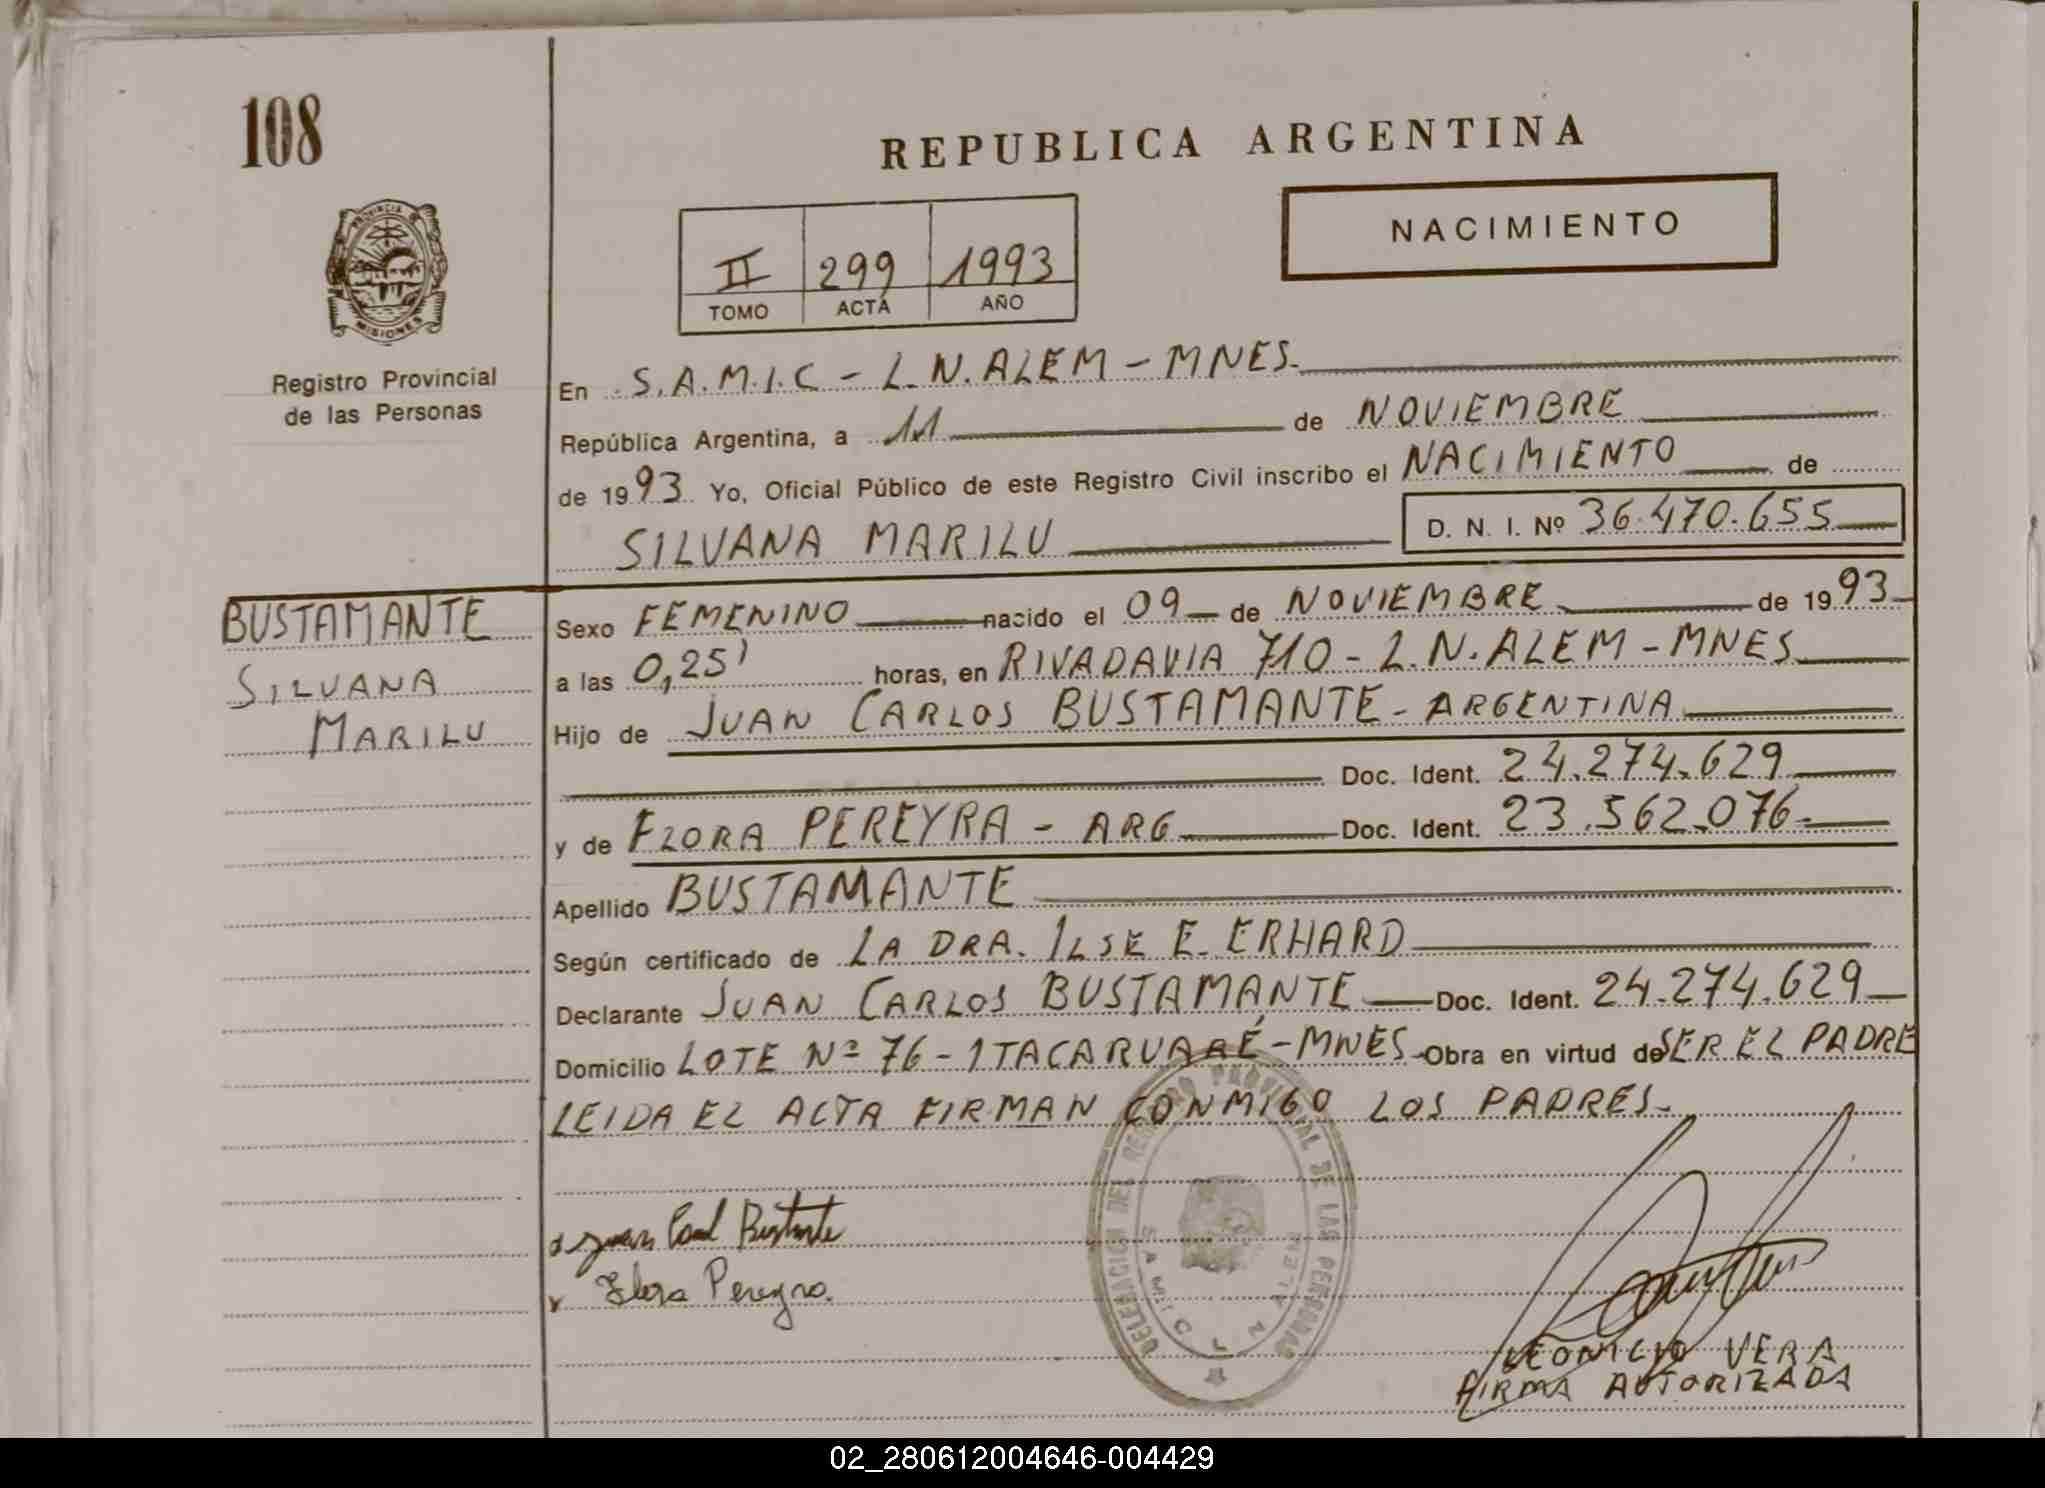 108
REPUBLICA ARGENTINA
NACIMIENTO
II 299 1993
TOMO ACTA AÑO
PROVINCIA DE
MISIONES
Registro Provincial
de las Personas
En S.A.M.I.C - L.N.ALEM - MNES.
República Argentina, a 11 de NOVIEMBRE
de 1993 Yo, Oficial Público de este Registro Civil inscribo el NACIMIENTO de
SILVANA MARILU D. N. I. Nº 36.470.655
BUSTAMANTE
SILVANA
MARILU
Sexo FEMENINO nacido el 09 de NOVIEMBRE de 1993
a las 0,25' horas, en RIVADAVIA 710 - L.N.ALEM - MNES
Hijo de JUAN CARLOS BUSTAMANTE - ARGENTINA
Doc. Ident. 24.274.629
y de FLORA PEREYRA - ARG Doc. Ident. 23.562.076-
Apellido BUSTAMANTE
Según certificado de LA DRA. ILSE E. ERHARD
Declarante JUAN CARLOS BUSTAMANTE Doc. Ident. 24.274.629
Domicilio LOTE Nº 76 - ITACARUARÉ - MNES Obra en virtud de SER EL PADRE
LEIDA EL ACTA FIRMAN CONMIGO LOS PADRES.
DELEGACION DEL REGISTRO PROVINCIAL DE LAS PERSONAS
SAMIC L N ALEM
Flora Pereyra.
LEONICIO VERA
FIRMA AUTORIZADA
02_280612004646-004429